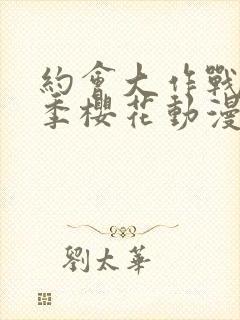 約會大作戰
季櫻花動漫
劉太華